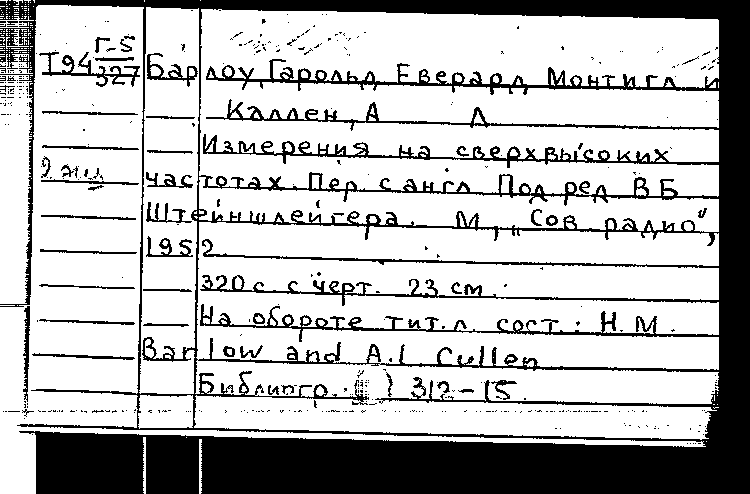 Г-5
Т94 327 Барлоу, Гарольд Еверард Монтигл и
Каллен, А Л
Измерения на сверхвысоких
2 экз частотах. Пер с англ Под ред В Б
Штейншлейгера. М, „Сов радио",
1952.
320 с. с черт. 23 см.
На обороте тит. л. сост.: H. M.
Barlow and A. L. Cullen
Библиогр.: 312-15.